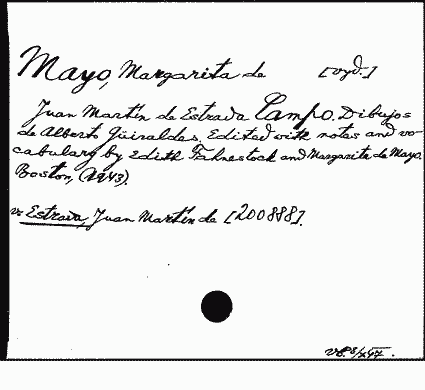 Mayo, Margarita de [oyd.]
Juan Martín de Estrada Campo. Dibujos
de Alberto Güiraldes. Edited with notes and vo
cabulary by Edith Fahnestock and Margarita de Mayo.
Boston, (1943).
v: Estrada, Juan Martín de [200888].